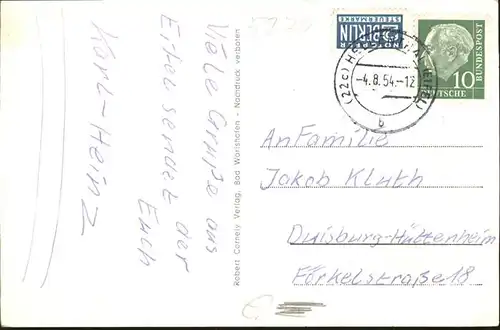 Viele Grüße aus
sendet der
Euch
Karl-Heinz
Robert Cornely Verlag, Bad Wörishofen - Nachdruck verboten
NOTOPFER
2 BERLIN
STEUERMARKE
DEUTSCHE
BUNDESPOST
10
(22c)
-4.8.54.-12
b
An Familie
Jakob Kluth
Duisburg-Hüttenheim
Förkelstraße 18